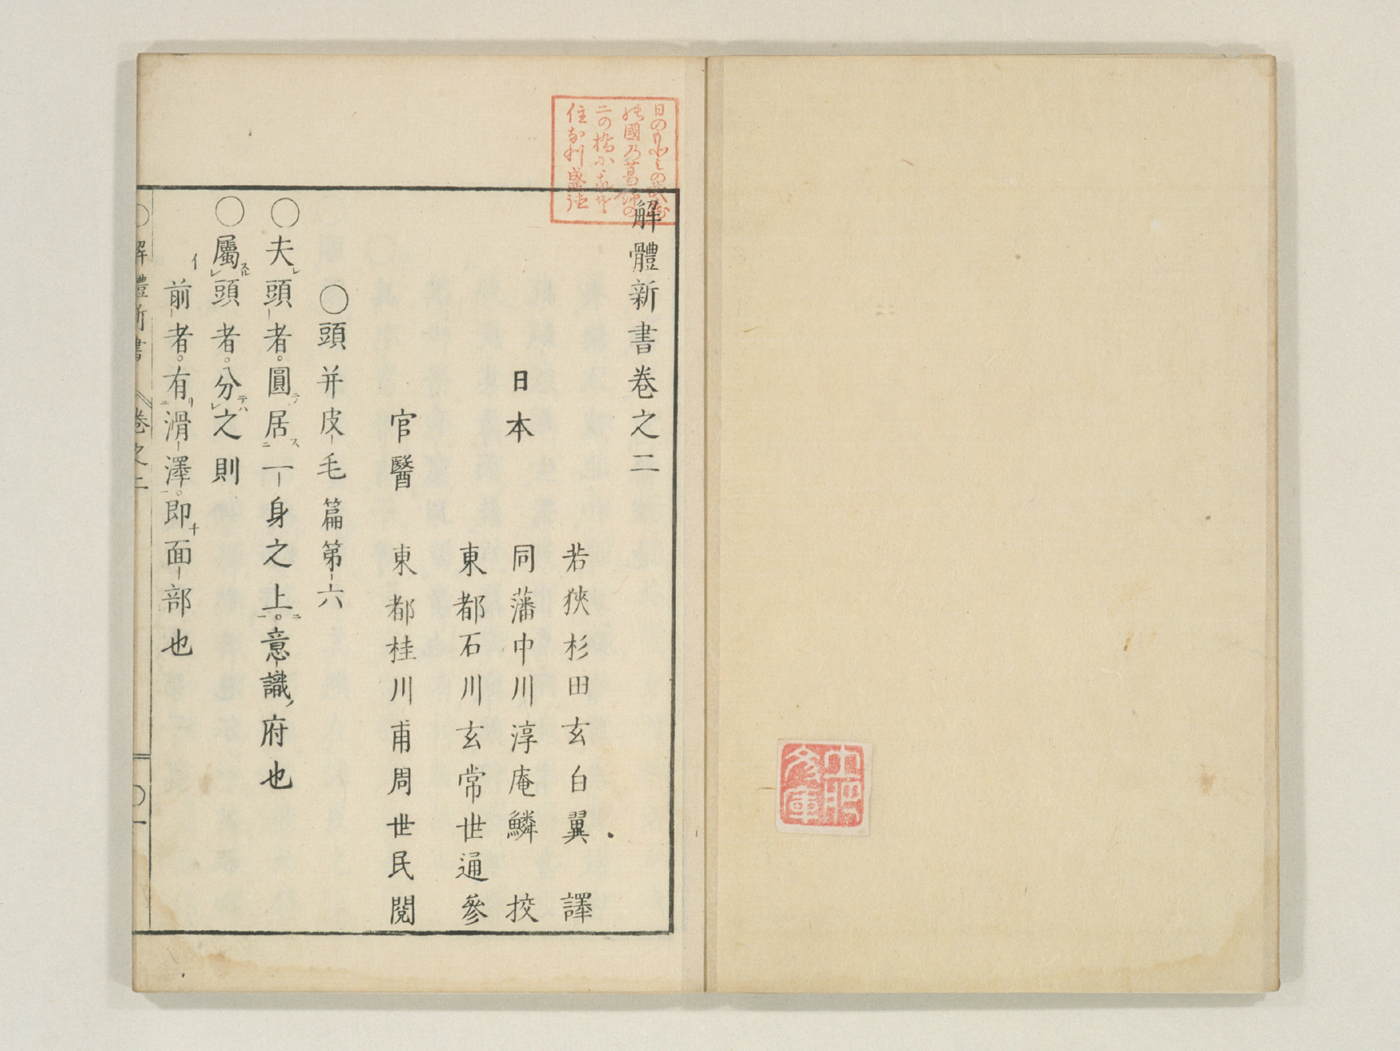 解體新書卷之二
若狹杉田玄白翼 譯
日本 同藩中川淳庵鱗 挍
東都石川玄常世通參
官醫 東都桂川甫周世民閲
〇頭并皮毛篇第六
〇夫頭者。圓居一身之上。意識府也
〇屬頭者。分之則
前者。有滑澤。即面部也
〇解體新書 卷之二 〇一
文庫